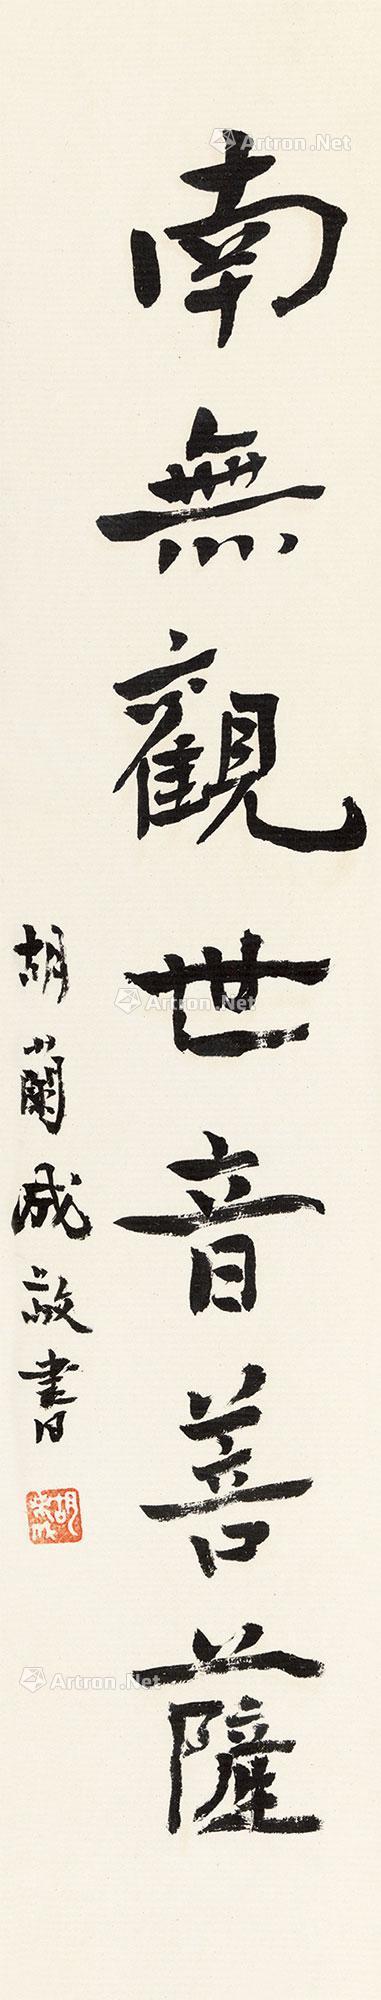 南無觀世音菩薩
胡蘭成敬書
Artron.Net
Artron.Net
Artron.Net